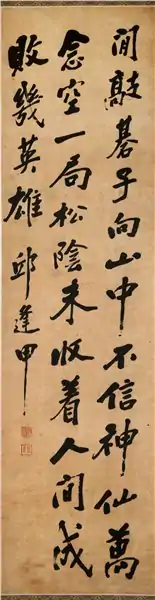 閒敲碁子向山中不信神仙萬
念空一局松陰未收着人間成
敗幾英雄 邱逢甲